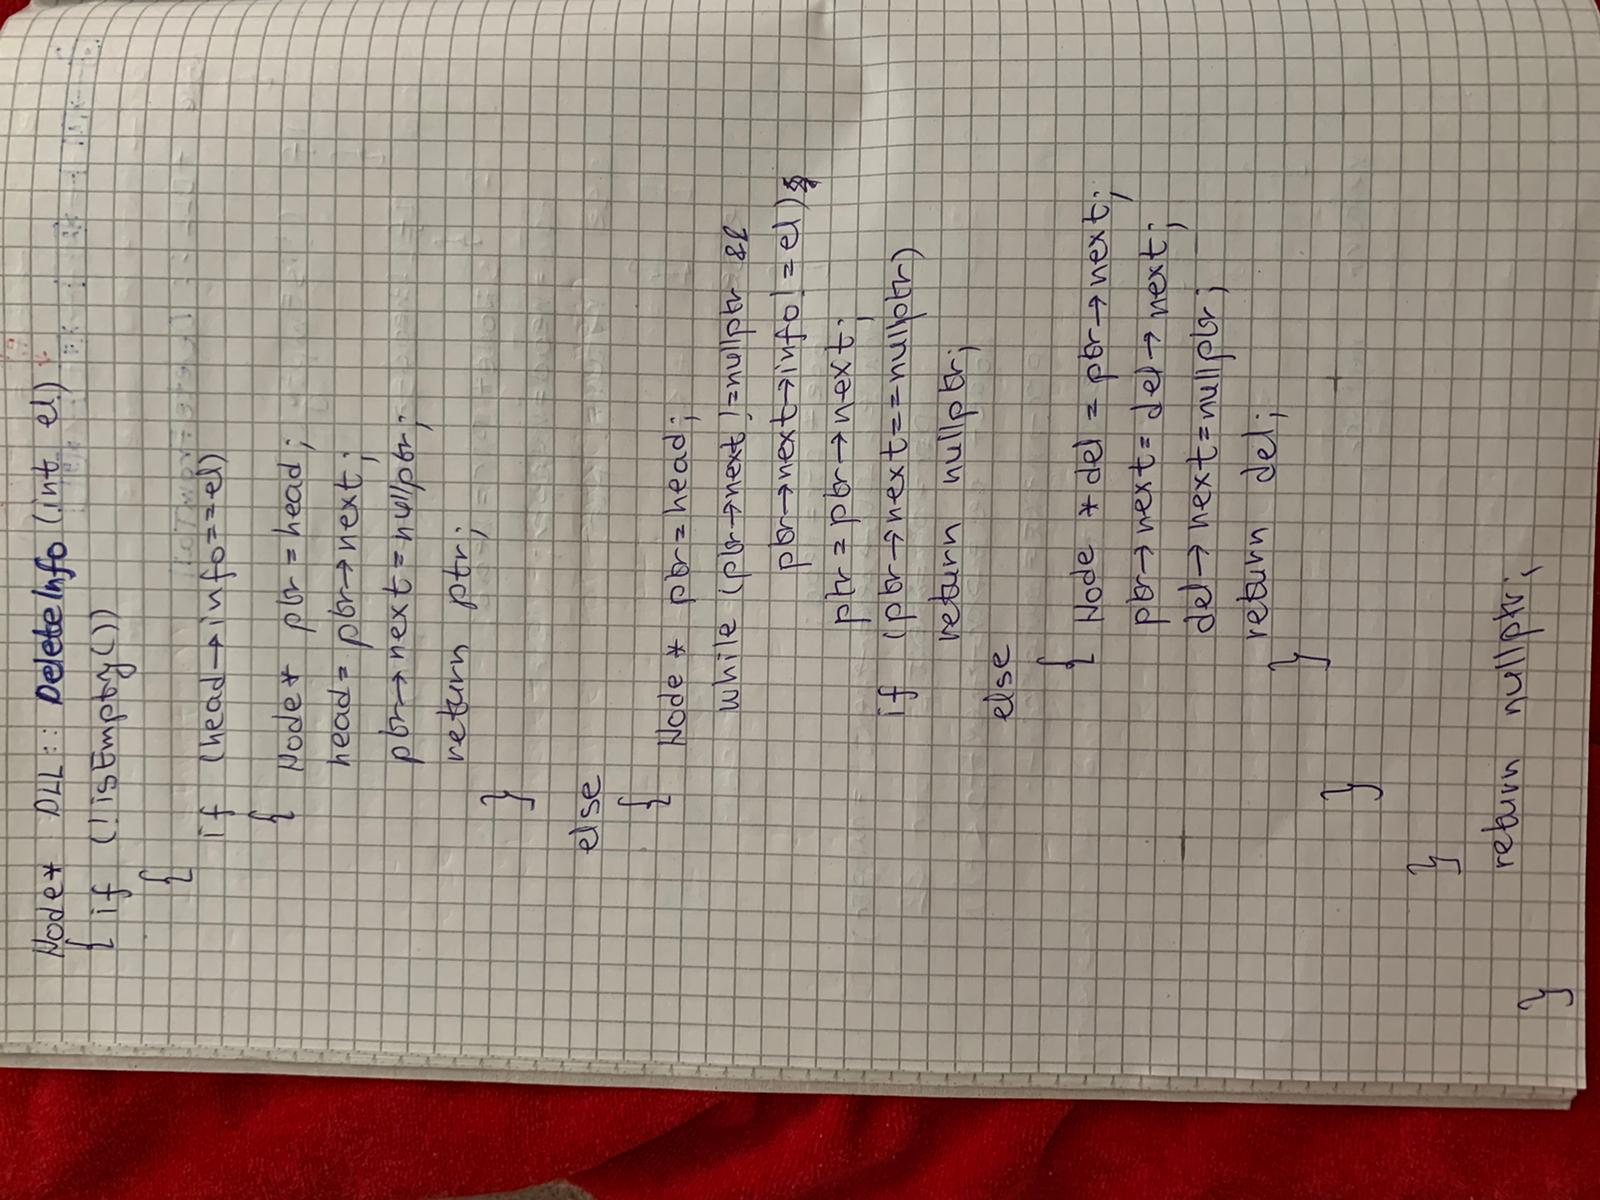 Node* DLL:: DeleteInfo (int el)
{ if (!isEmpty())
{
if (head→info==el)
{ Node* ptr = head;
head= ptr→next;
ptr→next=nullptr;
return ptr;
}
else
{ Node * ptr=head;
while (ptr→next !=nullptr &&
ptr→next→info!=el)
ptr = ptr→next;
if (ptr→next==nullptr)
return nullptr;
else
{ Node *del = ptr→next;
ptr→next= del→next;
del→next=nullptr;
return del;
}
}
}
return nullptr;
}